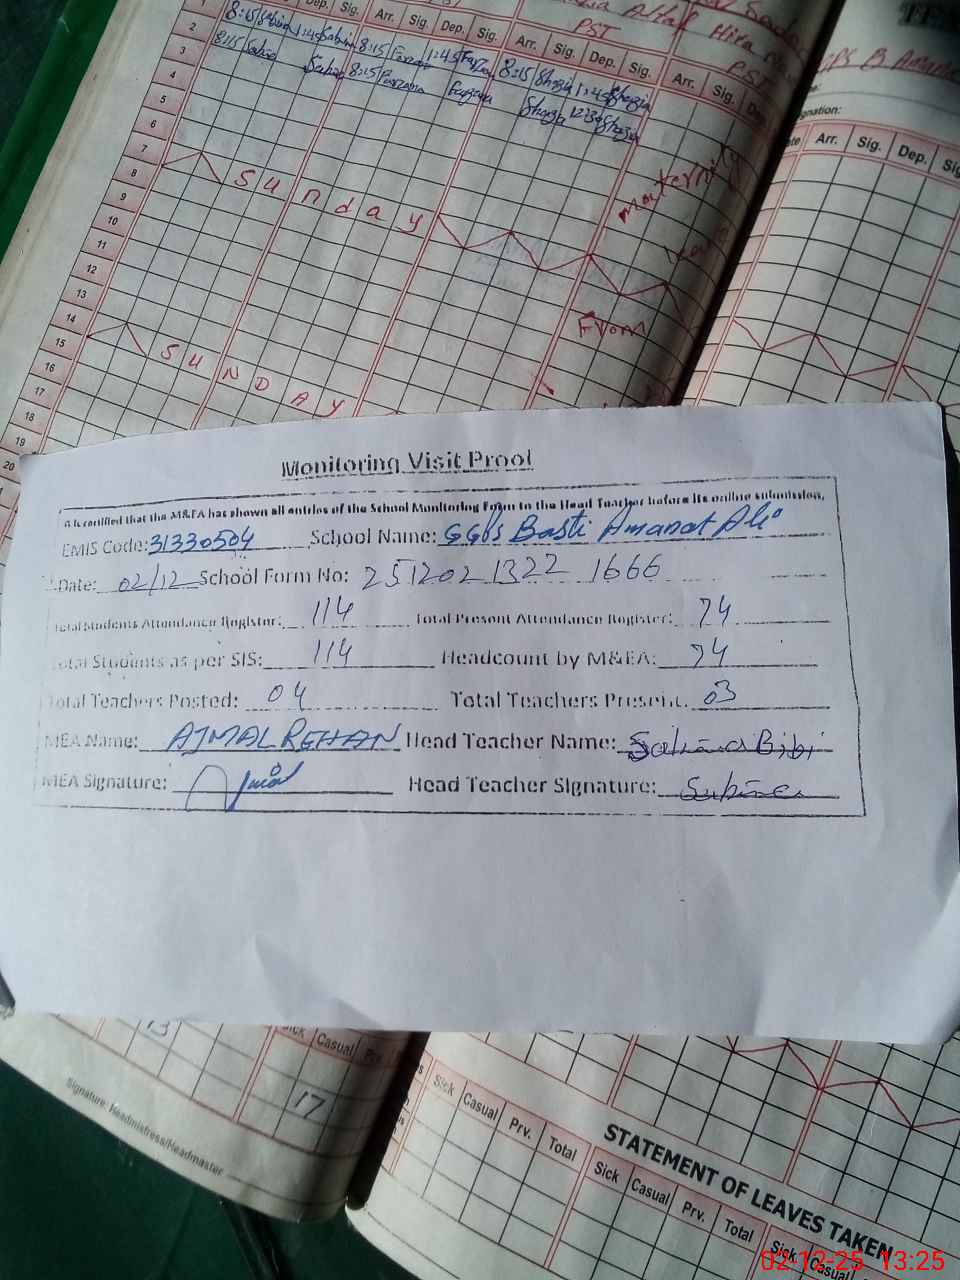 Dep. Sig. Arr. Sig. Dep. Sig. Arr. Sig. Dep. Sig. Arr. Sig.
PST
PST
1
2 8:15 Sabina 1:45 Sabina 8:15 Farzana 1:45 Farzana 8:15 Shazia 1:45 Shazia
3 8:15 Sabina Sabina 8:15 Farzana Farzana Shazia 12:30 Shazia
4
5
6
7
8 Sunday
9
10
11
12
13
14
15 SUNDAY
16
17
18
19
20
From
Arr. Sig. Dep. Sig
Monitoring Visit Proof
It is certified that the M&EA has shown all entries of the School Monitoring Form to the Head Teacher before its online submission.
EMIS Code: 31330504 School Name: GGPS Basti Amanat Ali
Date: 02/12 School Form No: 251202 1322 1666
Total Students Attendance Register: 114 Total Present Attendance Register: 74
Total Students as per SIS: 114 Headcount by M&EA: 74
Total Teachers Posted: 04 Total Teachers Present: 03
MEA Name: AJMAL REHAN Head Teacher Name: Sabina Bibi
MEA Signature: Ajmal Head Teacher Signature: Sabina
13
Sick Casual Prv.
17
Signature: Headmistress/Headmaster
Sick Casual Prv. Total Sick Casual Prv. Total Sick Casual
STATEMENT OF LEAVES TAKEN
02-12-25 13:25